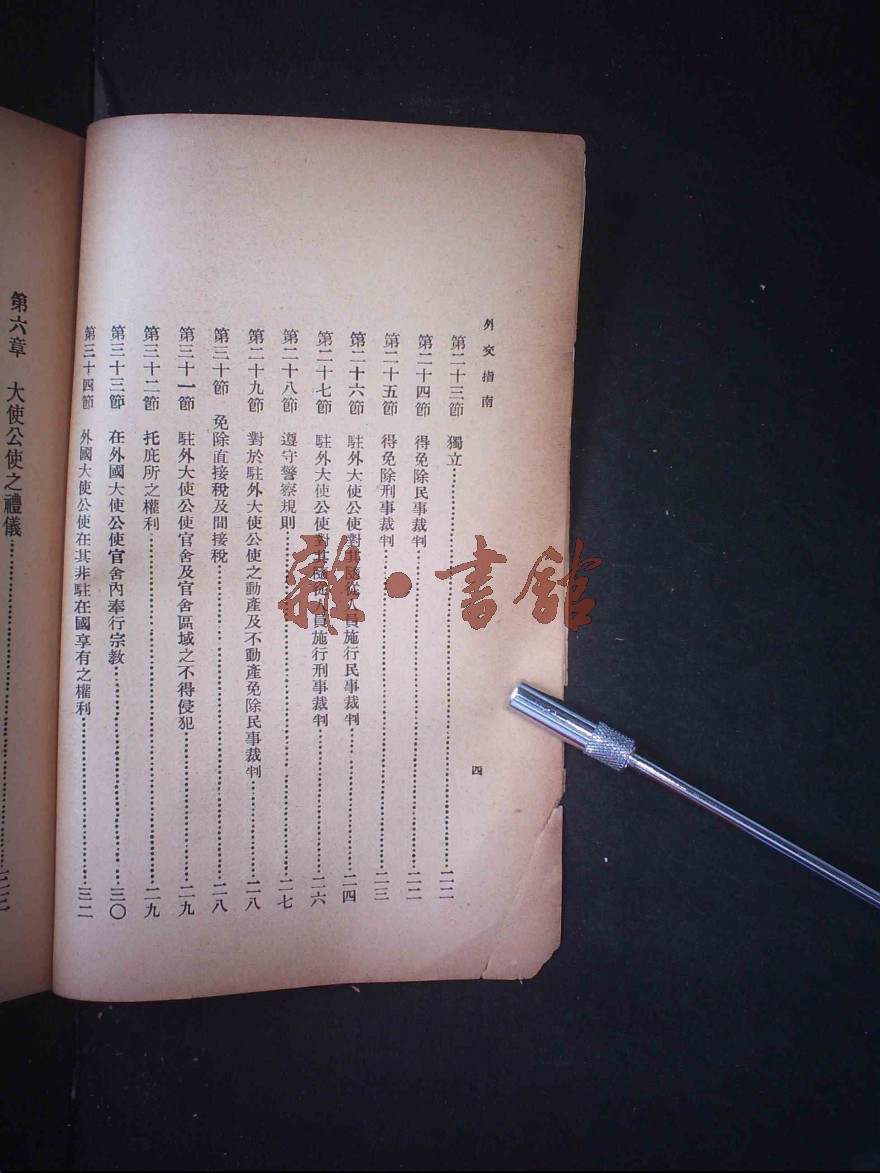 外交指南
第二十三節　獨立……二二
第二十四節　得免除民事裁判……二二
第二十五節　得免除刑事裁判……二三
第二十六節　駐外大使公使對其隨從人員施行民事裁判……二四
第二十七節　駐外大使公使對其隨從人員施行刑事裁判……二六
第二十八節　遵守警察規則……二七
第二十九節　對於駐外大使公使之動產及不動產免除民事裁判……二八
第三十節　免除直接稅及間接稅……二八
第三十一節　駐外大使公使官舍及官舍區域之不得侵犯……二九
第三十二節　托庇所之權利……二九
第三十三節　在外國大使公使官舍內奉行宗教……三〇
第三十四節　外國大使公使在其非駐在國享有之權利……三二
四
第六章　大使公使之禮儀……
雜·書館